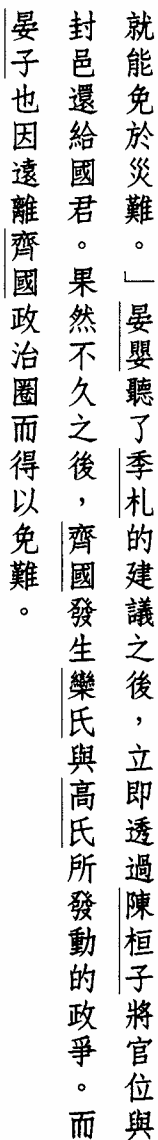 就能免於災難。」晏嬰聽了季札的建議之後，立即透過陳桓子將官位與
封邑還給國君。果然不久之後，齊國發生欒氏與高氏所發動的政爭。而
晏子也因遠離齊國政治圈而得以免難。